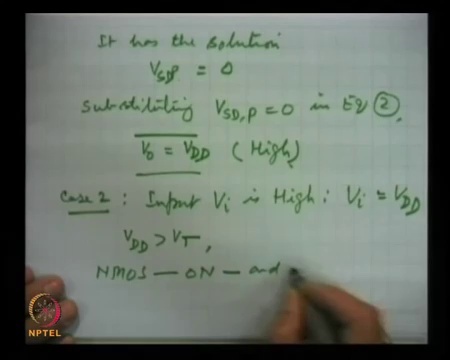 It has the solution
V_SDP = 0
Substituting V_SD,P = 0 in Eq ②.
V_O = V_DD (High)
Case 2 : Input V_i is High : V_i = V_DD
V_DD > V_T,
NMOS — ON — and
NPTEL